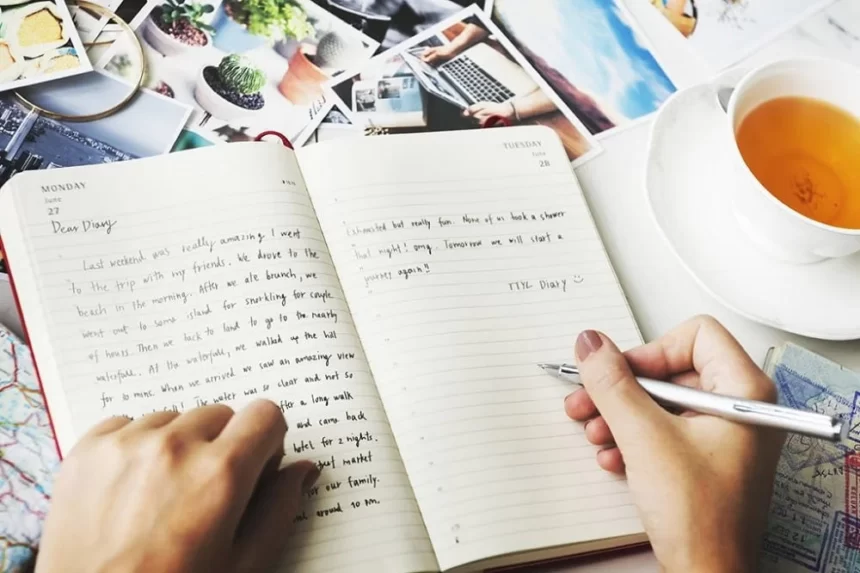 MONDAY
June
27
Dear Diary
Last weekend was really amazing! I went
to the trip with my friends. We drove to the
beach in the morning. After we ate brunch, we
went out to some island for snorkling for couple
of hours. Then we back to land to go to the nearby
waterfall. At the waterfall, we walked up the hill
for 10 mins. When we arrived we saw an amazing view
The water was so clear and not so
after a long walk
and came back
hotel for 2 nights.
market
for our family.
around 10 pm.
TUESDAY
June
28
Exhausted but really fun. None of us took a shower
that night! omg. Tomorrow we will start a
journey again!!
TTYL Diary :)